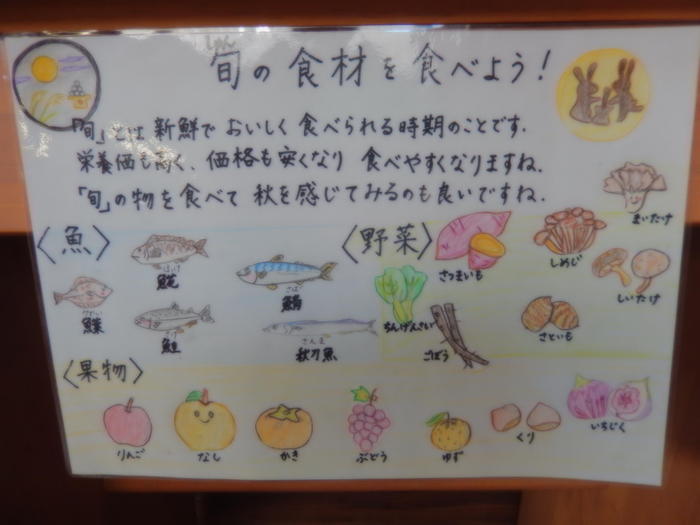 しゅん
旬の食材を食べよう!
「旬」とは新鮮でおいしく食べられる時期のことです.
栄養価も高く、価格も安くなり食べやすくなりますね.
「旬」の物を食べて秋を感じてみるのも良いですね.
〈魚〉
ほっけ
𩸽
さば
鯖
かれい
鰈
さけ
鮭
さんま
秋刀魚
〈野菜〉
さつまいも
しめじ
まいたけ
しいたけ
ちんげんさい
ごぼう
さといも
〈果物〉
りんご
なし
かき
ぶどう
ゆず
くり
いちじく